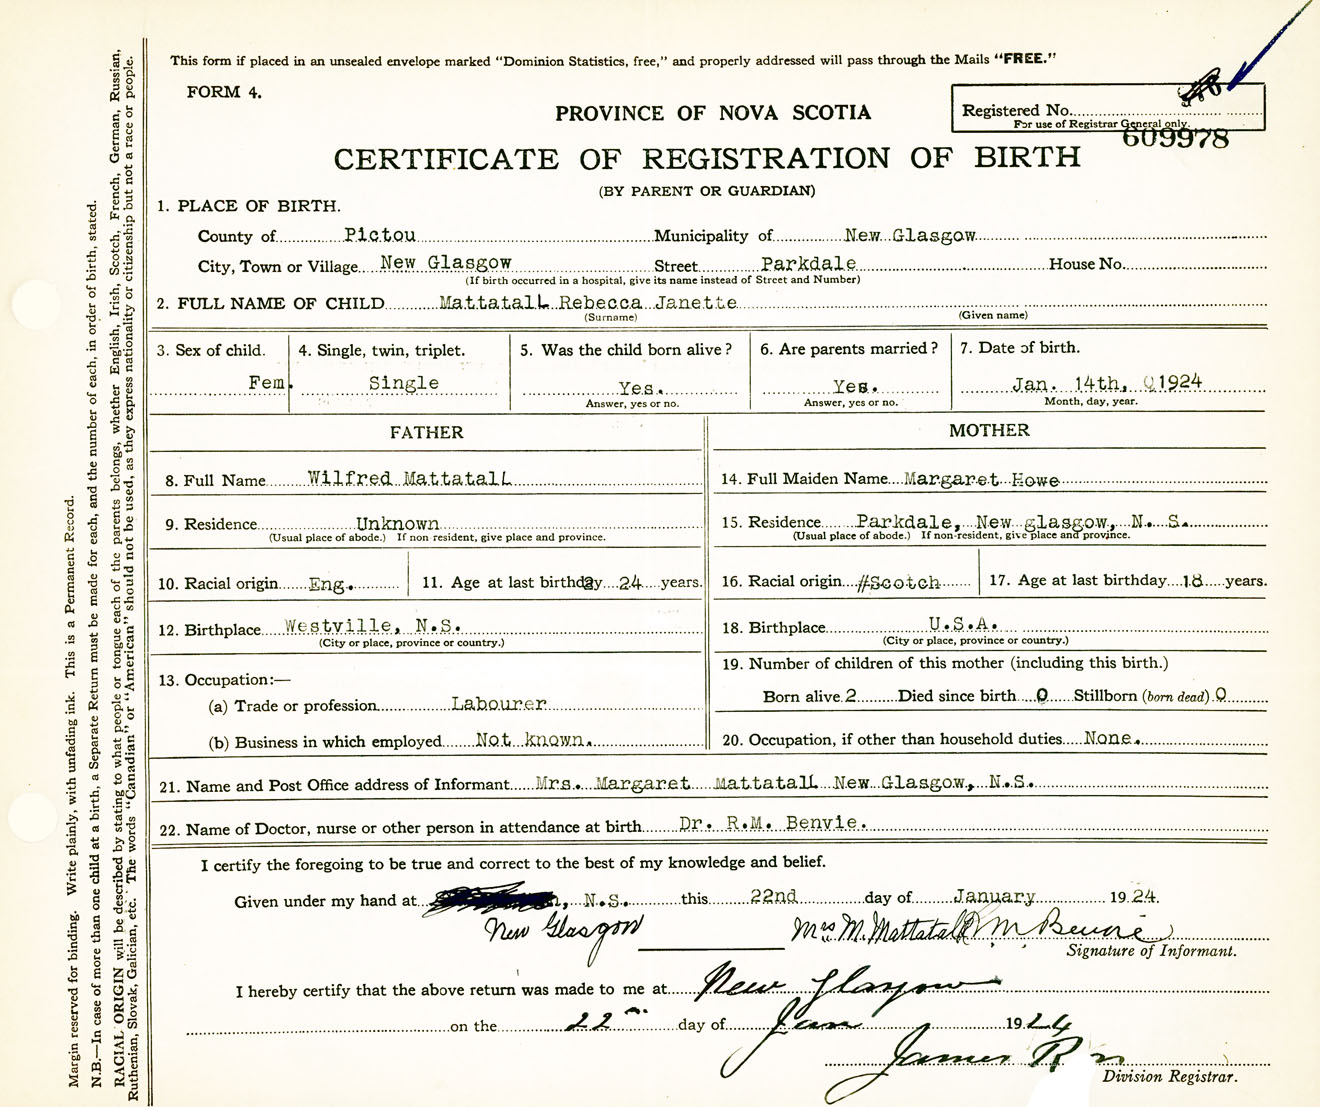 This form if placed in an unsealed envelope marked "Dominion Statistics, free," and properly addressed will pass through the Mails "FREE."
FORM 4.
PROVINCE OF NOVA SCOTIA
Registered No.
For use of Registrar General only.
609978
CERTIFICATE OF REGISTRATION OF BIRTH
(BY PARENT OR GUARDIAN)
1. PLACE OF BIRTH.
County of Pictou Municipality of New Glasgow
City, Town or Village New Glasgow Street Parkdale House No.
(If birth occurred in a hospital, give its name instead of Street and Number)
2. FULL NAME OF CHILD Mattatall Rebecca Janette
(Surname) (Given name)
3. Sex of child. 4. Single, twin, triplet. 5. Was the child born alive? 6. Are parents married? 7. Date of birth.
Fem. Single Yes. Yes. Jan. 14th, 1924
Answer, yes or no. Answer, yes or no. Month, day, year.
FATHER MOTHER
8. Full Name Wilfred Mattatall 14. Full Maiden Name Margaret Howe
9. Residence Unknown 15. Residence Parkdale, New glasgow, N. S.
(Usual place of abode.) If non resident, give place and province. (Usual place of abode.) If non-resident, give place and province.
10. Racial origin Eng. 11. Age at last birthday 24 years. 16. Racial origin #Scotch 17. Age at last birthday 18 years.
12. Birthplace Westville, N.S. 18. Birthplace U.S.A.
(City or place, province or country.) (City or place, province or country.)
13. Occupation:— 19. Number of children of this mother (including this birth.)
(a) Trade or profession Labourer Born alive 2 Died since birth 0 Stillborn (born dead) 0
(b) Business in which employed Not known. 20. Occupation, if other than household duties None.
21. Name and Post Office address of Informant Mrs. Margaret Mattatall New Glasgow, N.S.
22. Name of Doctor, nurse or other person in attendance at birth Dr. R.M. Benvie.
I certify the foregoing to be true and correct to the best of my knowledge and belief.
Given under my hand at N.S. this 22nd day of January 1924.
New Glasgow Mrs M. Mattatall R M Benvie
Signature of Informant.
I hereby certify that the above return was made to me at New Glasgow
on the 22nd day of Jan 1924
James R
Division Registrar.
Margin reserved for binding. Write plainly, with unfading ink. This is a Permanent Record.
N.B.—In case of more than one child at a birth, a Separate Return must be made for each, and the number of each, in order of birth, stated.
RACIAL ORIGIN will be described by stating to what people or tongue each of the parents belongs, whether English, Irish, Scotch, French, German, Russian,
Ruthenian, Slovak, Galician, etc. The words "Canadian" or "American" should not be used, as they express nationality or citizenship but not a race or people.